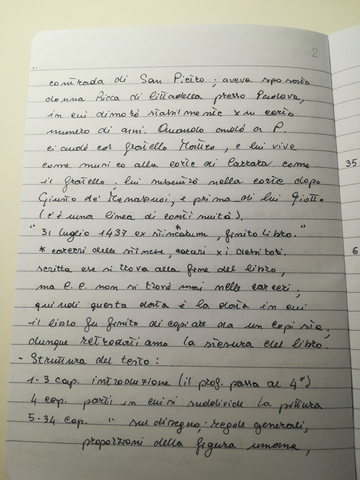 2
contrada di San Pietro; aveva sposato
donna Ricca di Cittadella presso Padova,
in cui dimorò stabilmente x un certo
numero di anni. Quando andò a P.
ci andò col fratello Matteo, e lui vive
come musico alla corte di Carrara come
il fratello, lui subentrò nella corte dopo
Giusto de' Menabuoi, e prima di lui Giotto
(c'è una linea di continuità).
"31 luglio 1437 ex stincarum, finito libro."
* carceri delle stinche, carceri x i debitori.
scritta che si trova alla fine del libro,
ma C.C. non si trovò mai nelle carceri,
quindi questa data è la data in cui
il libro fu finito di copiare da un copista,
dunque retrodatiamo la stesura del libro.
- Struttura del testo:
1-3 cap. introduzione (il prof. passa al 4°)
4 cap. parti in cui si suddivide la pittura
5-34 cap. " sul disegno: regole generali,
proporzioni della figura umana,
35
6